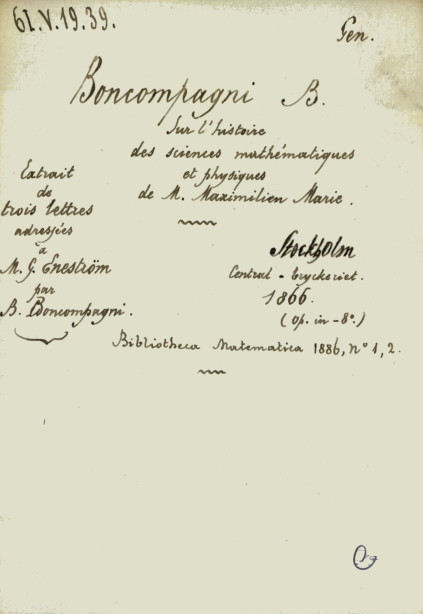 61.V.19.39.
Gen.
Boncompagni B.
Sur l'histoire
des sciences mathématiques
et physiques
de M. Maximilien Marie.
Extrait
de
trois lettres
adressées
à
M. G. Eneström
par
B. Boncompagni.
Stockholm
Central-tryckeriet.
1866.
(op. in-8°.)
Bibliotheca Matematica 1886, n° 1, 2.